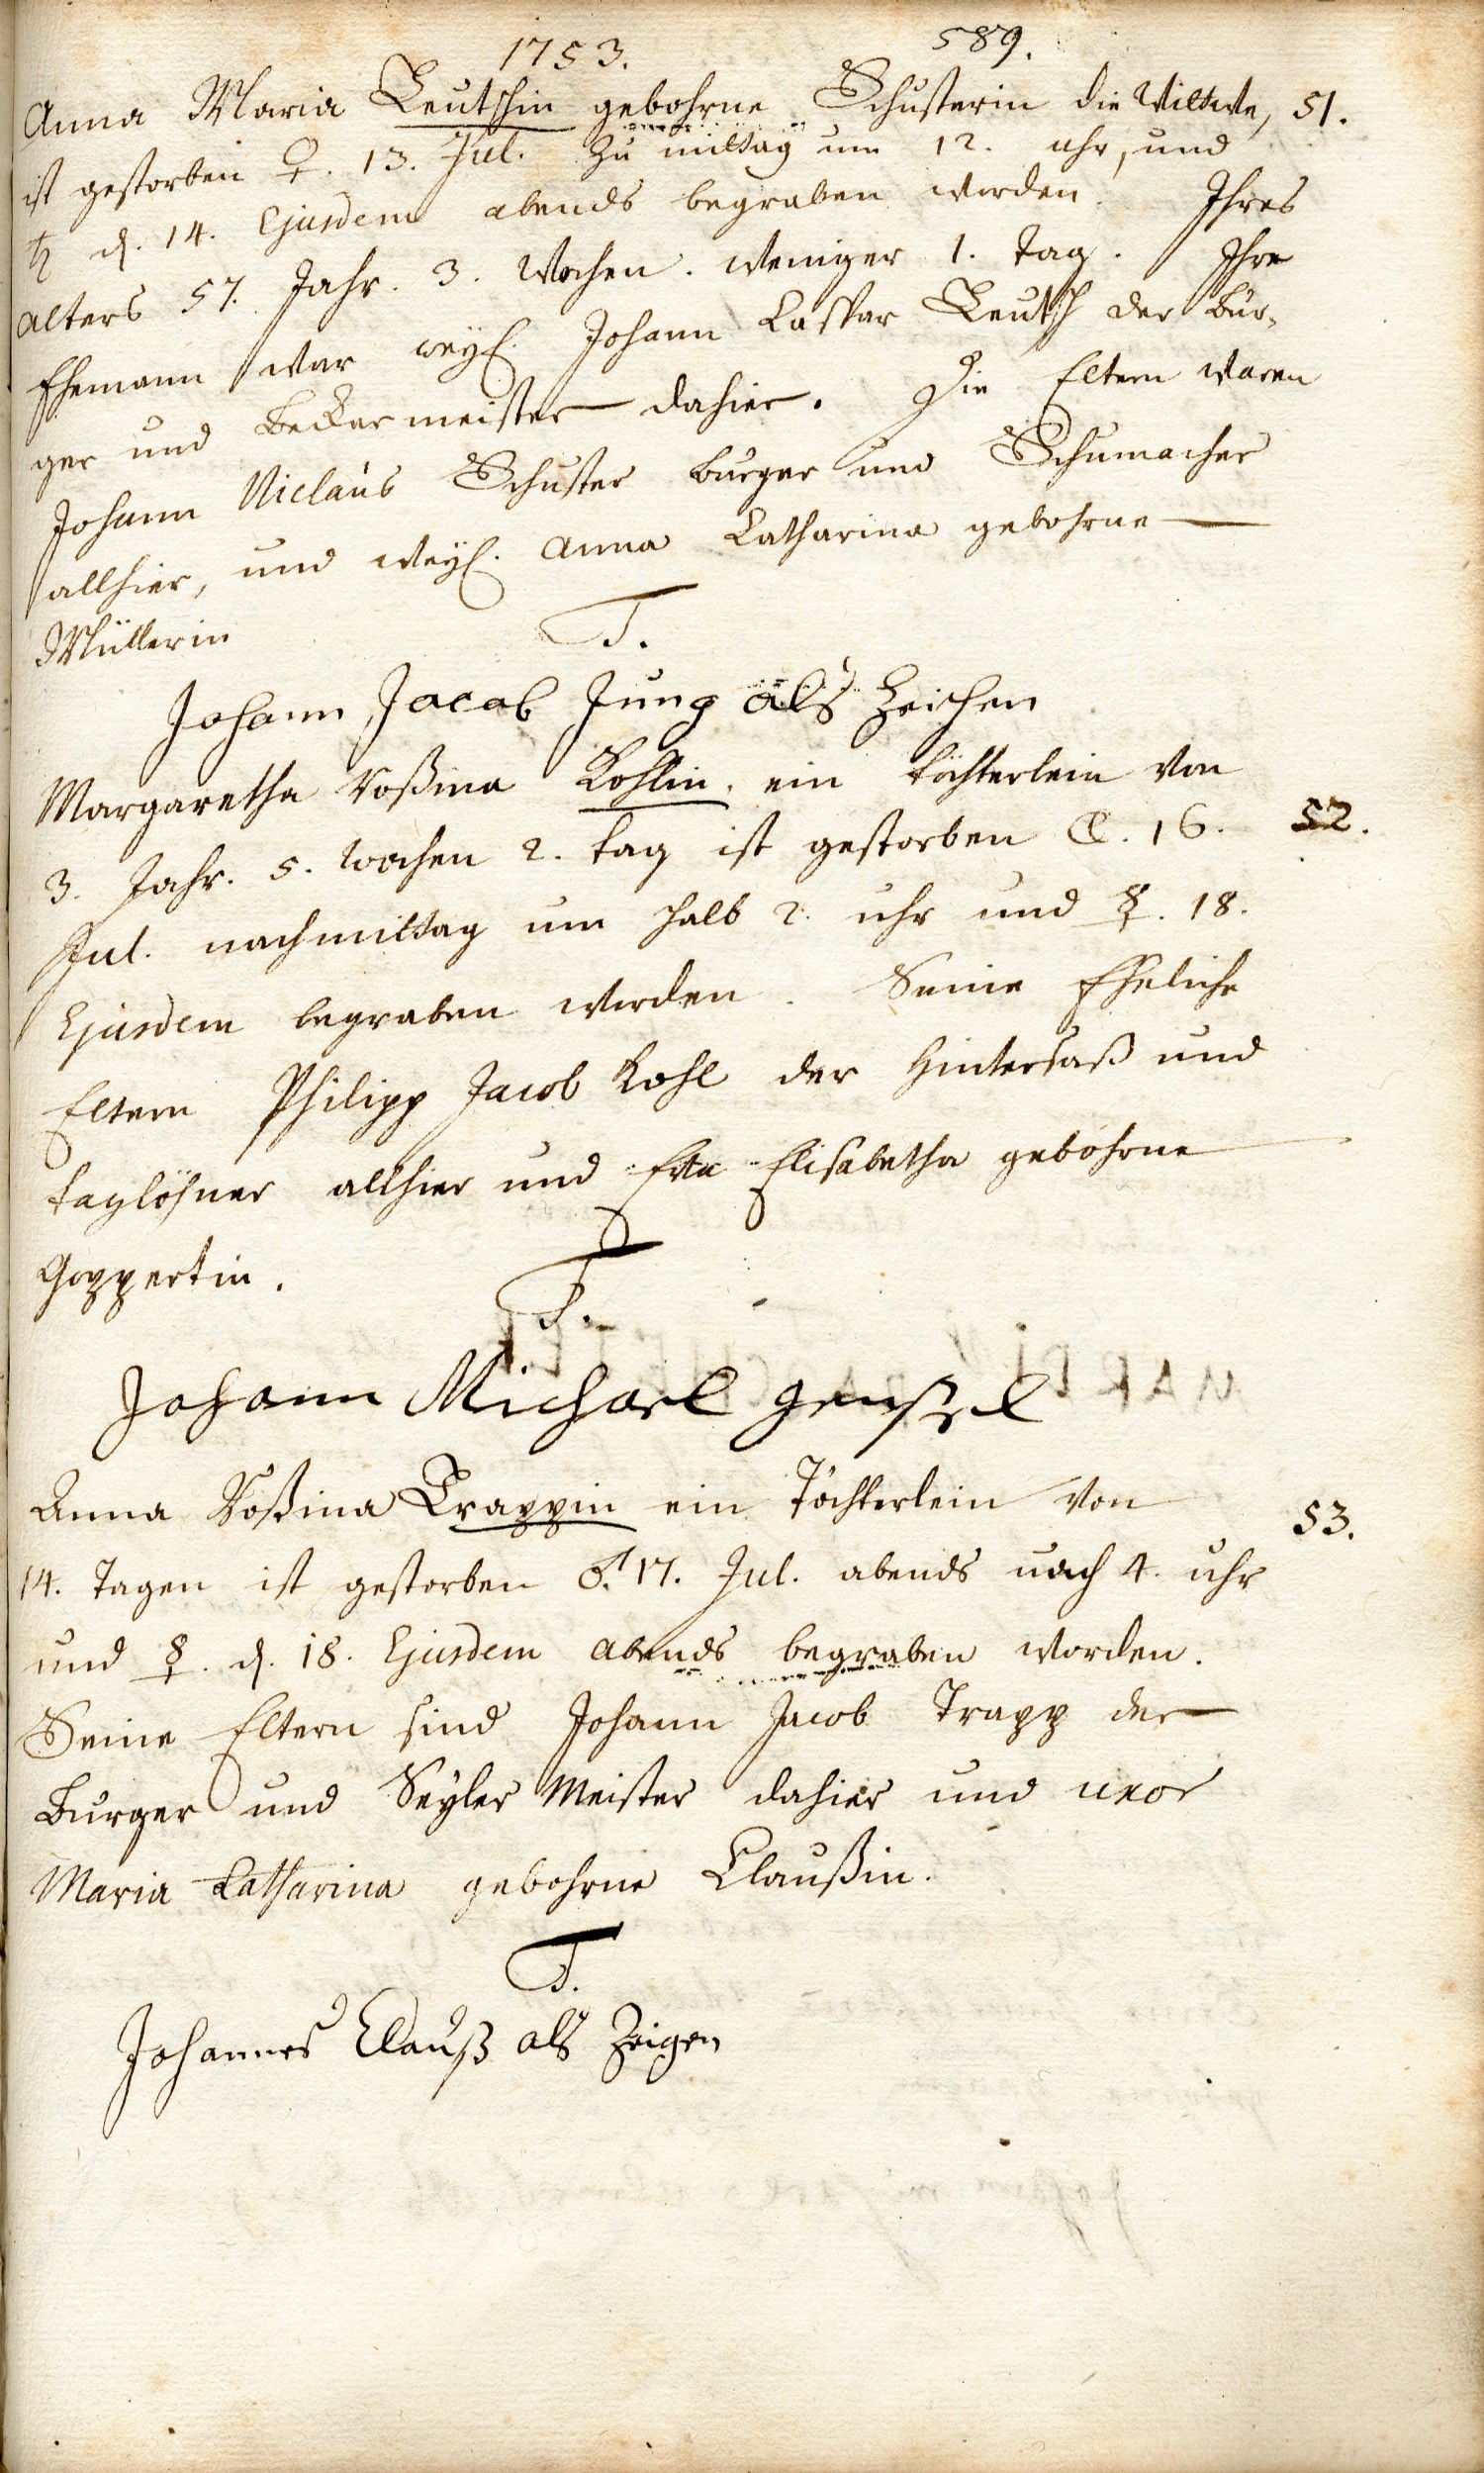 1753. 589.
Anna Maria Leutschin gebohrne Schusterin die Wittwe, 51.
ist gestorben ♀. 13. Jul. zu mittag um 12. uhr, und
♄ d. 14. Ejusdem abends begraben worden. Ihres
alters 57. Jahr. 3. Wochen. weniger 1. tag. Ihr
Ehemann war weyl. Johann Caspar Leutsch der Bur-
ger und Beckermeister dahier. Die Eltern waren
Johann Niclaus Schuster burger und Schumacher
allhier, und weyl. Anna Catharina gebohrne
Müllerin
T.
Johann Jacob Jung als Zeichen
Margaretha Roßina Kohlin. ein töchterlein von
3. Jahr. 5. wochen 2. tag ist gestorben ☾. 16. 52.
Jul. nachmittag um halb 2. uhr und ☿. 18.
Ejusdem begraben worden. Seine Eheliche
Eltern Philipp Jacob Kohl der Hintersaß und
taglöhner allhier und Eva Elisabetha gebohrne
Goppertin.
T.
Johann Michael
Anna Roßina Trappin ein Töchterlein von 53.
14. Tagen ist gestorben ♂. 17. Jul. abends nach 4. uhr
und ☿. d. 18. Ejusdem abends begraben worden.
Seine Eltern sind Johann Jacob Trapp der
Burger und Seyler Meister dahier und uxor
Maria Catharina gebohrne Claußin.
T.
Johannes Clauß als Zeigen